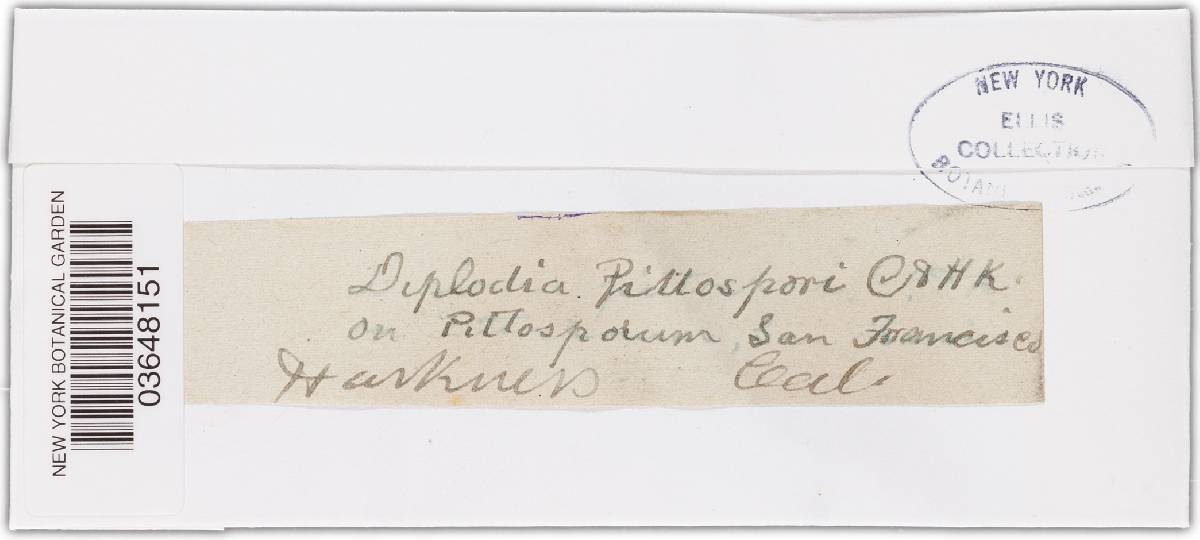 NEW YORK
ELLIS
COLLECTION
BOTANI
Diplodia Pittospori C&HK.
on Pittosporum, San Francisco
Harkness Cal.
NEW YORK BOTANICAL GARDEN
03648151